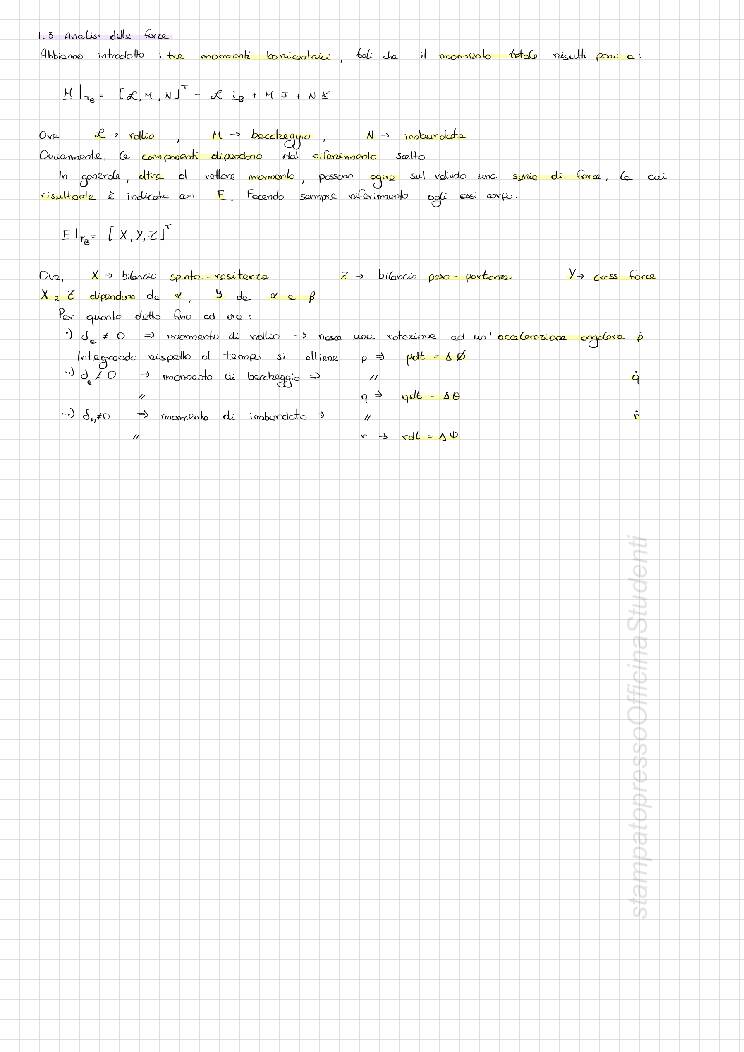 1.3 Analisi delle forze
Abbiamo introdotto i tre momenti baricentrici, tali che il momento totale risulti pari a:
M|_{r_B} = [ℒ, M, N]^T = ℒ i_B + M J + N K
Ove ℒ → rollio, M → beccheggio, N → imbardata
Ovviamente, le componenti dipendono dal riferimento scelto
In generale, oltre al vettore momento, possono agire sul velivolo una serie di forze, la cui
risultante è indicata con F. Facendo sempre riferimento agli assi corpo:
F|_{r_B} = [X, Y, Z]^T
Ove, X → bilancio spinta-resistenza Z → bilancio peso-portanza Y → cross force
X e Z dipendono da α, Y da α e β
Per quanto detto fino ad ora:
·) δ_a ≠ 0 => momento di rollio -> nasce una rotazione ad un'accelerazione angolare ṗ
Integrando rispetto al tempo si ottiene p => pdt = Δϕ
··) δ_e ≠ 0 -> momento di beccheggio => " q̇
" q => qdt = Δθ
···) δ_r ≠ 0 -> momento di imbardata => " ṙ
" r -> rdt = Δψ
stampatopressoOfficinaStudenti